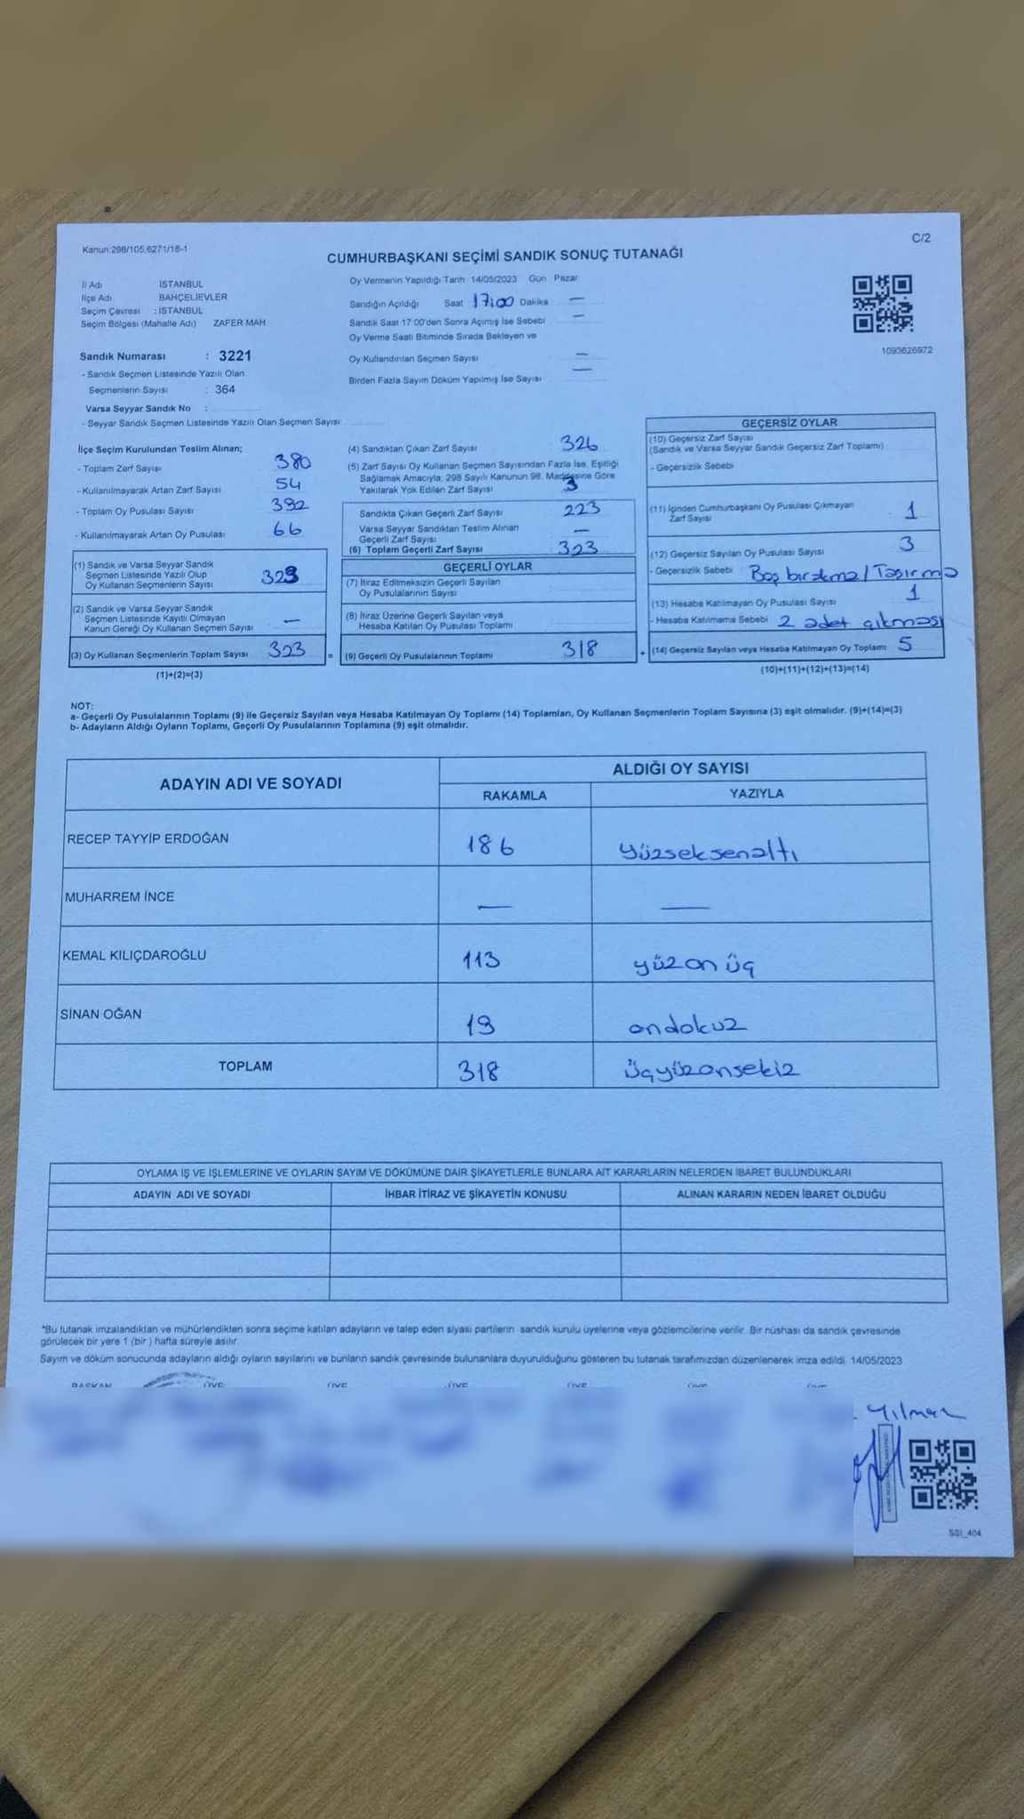 Kanun:298/105,6271/18-1
C/2
CUMHURBAŞKANI SEÇİMİ SANDIK SONUÇ TUTANAĞI
İl Adı İSTANBUL
İlçe Adı BAHÇELİEVLER
Seçim Çevresi : İSTANBUL
Seçim Bölgesi (Mahalle Adı) ZAFER MAH
Oy Vermenin Yapıldığı Tarih 14/05/2023 Gün Pazar
Sandığın Açıldığı Saat 17:00 Dakika —
Sandık Saat 17:00'den Sonra Açılmış İse Sebebi —
Oy Verme Saati Bitiminde Sırada Bekleyen ve
Oy Kullandırılan Seçmen Sayısı —
Birden Fazla Sayım Döküm Yapılmış İse Sayısı —
1093626972
Sandık Numarası : 3221
- Sandık Seçmen Listesinde Yazılı Olan
Seçmenlerin Sayısı : 364
Varsa Seyyar Sandık No :
- Seyyar Sandık Seçmen Listesinde Yazılı Olan Seçmen Sayısı
İlçe Seçim Kurulundan Teslim Alınan;
- Toplam Zarf Sayısı 380
- Kullanılmayarak Artan Zarf Sayısı 54
- Toplam Oy Pusulası Sayısı 392
- Kullanılmayarak Artan Oy Pusulası 66
(1) Sandık ve Varsa Seyyar Sandık
Seçmen Listesinde Yazılı Olup
Oy Kullanan Seçmenlerin Sayısı 323
(2) Sandık ve Varsa Seyyar Sandık
Seçmen Listesinde Kayıtlı Olmayan
Kanun Gereği Oy Kullanan Seçmen Sayısı —
(3) Oy Kullanan Seçmenlerin Toplam Sayısı 323
(1)+(2)=(3)
(4) Sandıktan Çıkan Zarf Sayısı 326
(5) Zarf Sayısı Oy Kullanan Seçmen Sayısından Fazla İse, Eşitliği
Sağlamak Amacıyla, 298 Sayılı Kanunun 98. Maddesine Göre
Yakılarak Yok Edilen Zarf Sayısı 3
Sandıkta Çıkan Geçerli Zarf Sayısı 223
Varsa Seyyar Sandıktan Teslim Alınan
Geçerli Zarf Sayısı —
(6) Toplam Geçerli Zarf Sayısı 323
GEÇERLİ OYLAR
(7) İtiraz Edilmeksizin Geçerli Sayılan
Oy Pusulalarının Sayısı
(8) İtiraz Üzerine Geçerli Sayılan veya
Hesaba Katılan Oy Pusulası Toplamı
= (9) Geçerli Oy Pusulalarının Toplamı 318
GEÇERSİZ OYLAR
(10) Geçersiz Zarf Sayısı
(Sandık ve Varsa Seyyar Sandık Geçersiz Zarf Toplamı)
- Geçersizlik Sebebi
(11) İçinden Cumhurbaşkanı Oy Pusulası Çıkmayan
Zarf Sayısı 1
(12) Geçersiz Sayılan Oy Pusulası Sayısı 3
- Geçersizlik Sebebi Boş bırakma / Taşırma
(13) Hesaba Katılmayan Oy Pusulası Sayısı 1
- Hesaba Katılmama Sebebi 2 adet çıkması
+ (14) Geçersiz Sayılan veya Hesaba Katılmayan Oy Toplamı 5
(10)+(11)+(12)+(13)=(14)
NOT:
a- Geçerli Oy Pusulalarının Toplamı (9) ile Geçersiz Sayılan veya Hesaba Katılmayan Oy Toplamı (14) Toplamları, Oy Kullanan Seçmenlerin Toplam Sayısına (3) eşit olmalıdır. (9)+(14)=(3)
b- Adayların Aldığı Oyların Toplamı, Geçerli Oy Pusulalarının Toplamına (9) eşit olmalıdır.
ADAYIN ADI VE SOYADI ALDIĞI OY SAYISI
RAKAMLA YAZIYLA
RECEP TAYYİP ERDOĞAN 186 yüzseksenaltı
MUHARREM İNCE — —
KEMAL KILIÇDAROĞLU 113 yüzonüç
SİNAN OĞAN 19 ondokuz
TOPLAM 318 üçyüzonsekiz
OYLAMA İŞ VE İŞLEMLERİNE VE OYLARIN SAYIM VE DÖKÜMÜNE DAİR ŞİKAYETLERLE BUNLARA AİT KARARLARIN NELERDEN İBARET BULUNDUKLARI
ADAYIN ADI VE SOYADI İHBAR İTİRAZ VE ŞİKAYETİN KONUSU ALINAN KARARIN NEDEN İBARET OLDUĞU
*Bu tutanak imzalandıktan ve mühürlendikten sonra seçime katılan adayların ve talep eden siyasi partilerin sandık kurulu üyelerine veya gözlemcilerine verilir. Bir nüshası da sandık çevresinde
görülecek bir yere 1 (bir) hafta süreyle asılır.
Sayım ve döküm sonucunda adayların aldığı oyların sayılarını ve bunların sandık çevresinde bulunanlara duyurulduğunu gösteren bu tutanak tarafımızdan düzenlenerek imza edildi. 14/05/2023
BAŞKAN ÜYE ÜYE ÜYE ÜYE ÜYE ÜYE
Yılmaz
SSI_404